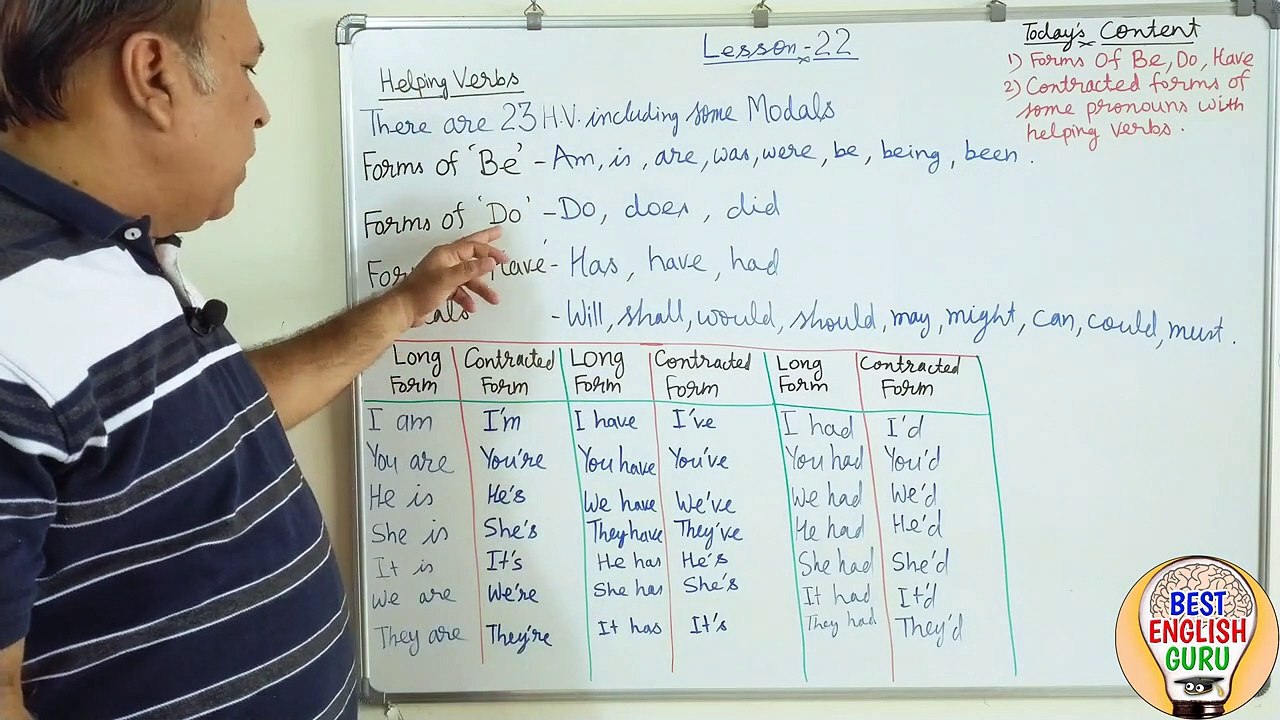 Lesson-22
Helping Verbs
There are 23 H.V. including some Modals
Forms of 'Be' - Am, is, are, was, were, be, being, been.
Forms of 'Do' - Do, does, did
have' - Has, have, had
- Will, shall, would, should, may, might, can, could, must.
Today's Content
1) Forms of Be, Do, Have
2) Contracted forms of
some pronouns with
helping verbs.
Long Form Contracted Form Long Form Contracted Form Long Form Contracted Form
I am I'm I have I've I had I'd
You are You're You have You've You had You'd
He is He's We have We've We had We'd
She is She's They have They've He had He'd
It is It's He has He's She had She'd
We are We're She has She's It had It'd
They are They're It has It's They had They'd
BEST
ENGLISH
GURU